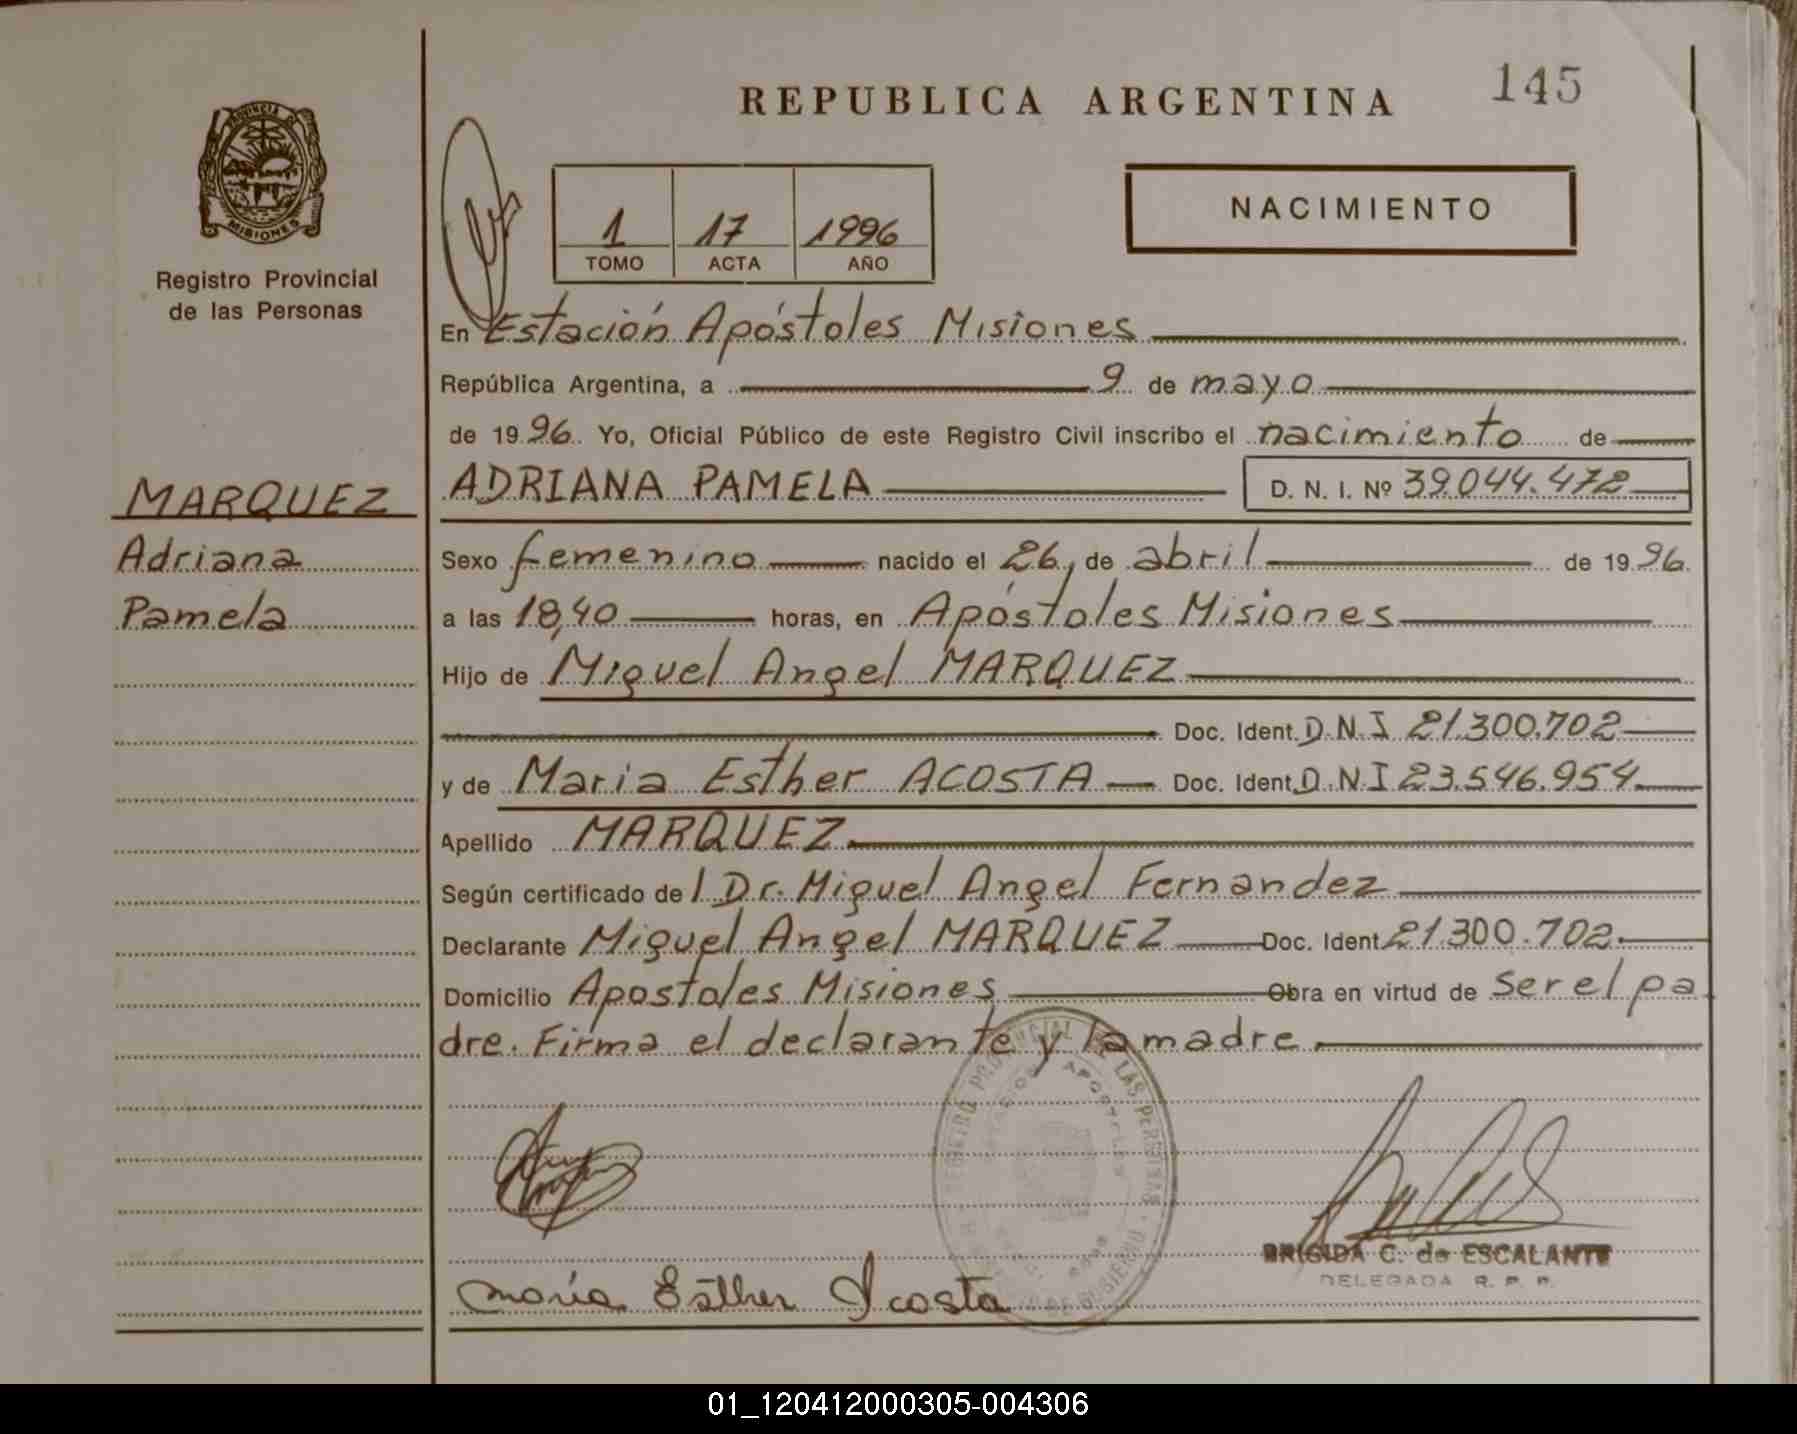 REPUBLICA ARGENTINA
145
PROVINCIA DE
MISIONES
Registro Provincial
de las Personas
NACIMIENTO
1 17 1996
TOMO ACTA AÑO
En Estación Apóstoles Misiones
República Argentina, a 9 de mayo
de 1996. Yo, Oficial Público de este Registro Civil inscribo el nacimiento de
MARQUEZ
Adriana
Pamela
ADRIANA PAMELA D. N. I. Nº 39.044.472
Sexo femenino nacido el 26, de abril de 1996.
a las 18,40 horas, en Apóstoles Misiones
Hijo de Miguel Angel MARQUEZ
Doc. Ident. D.N.I 21.300.702
y de Maria Esther ACOSTA Doc. Ident. D.N.I 23.546.954.
Apellido MARQUEZ
Según certificado de l Dr. Miguel Angel Fernandez
Declarante Miguel Angel MARQUEZ Doc. Ident 21.300.702.
Domicilio Apostoles Misiones Obra en virtud de ser el pa
dre. Firma el declarante y la madre.
REGISTRO PROVINCIAL DE LAS PERSONAS
BRIGIDA C. de ESCALANTE
DELEGADA R. P. P.
María Esther Acosta
01_120412000305-004306